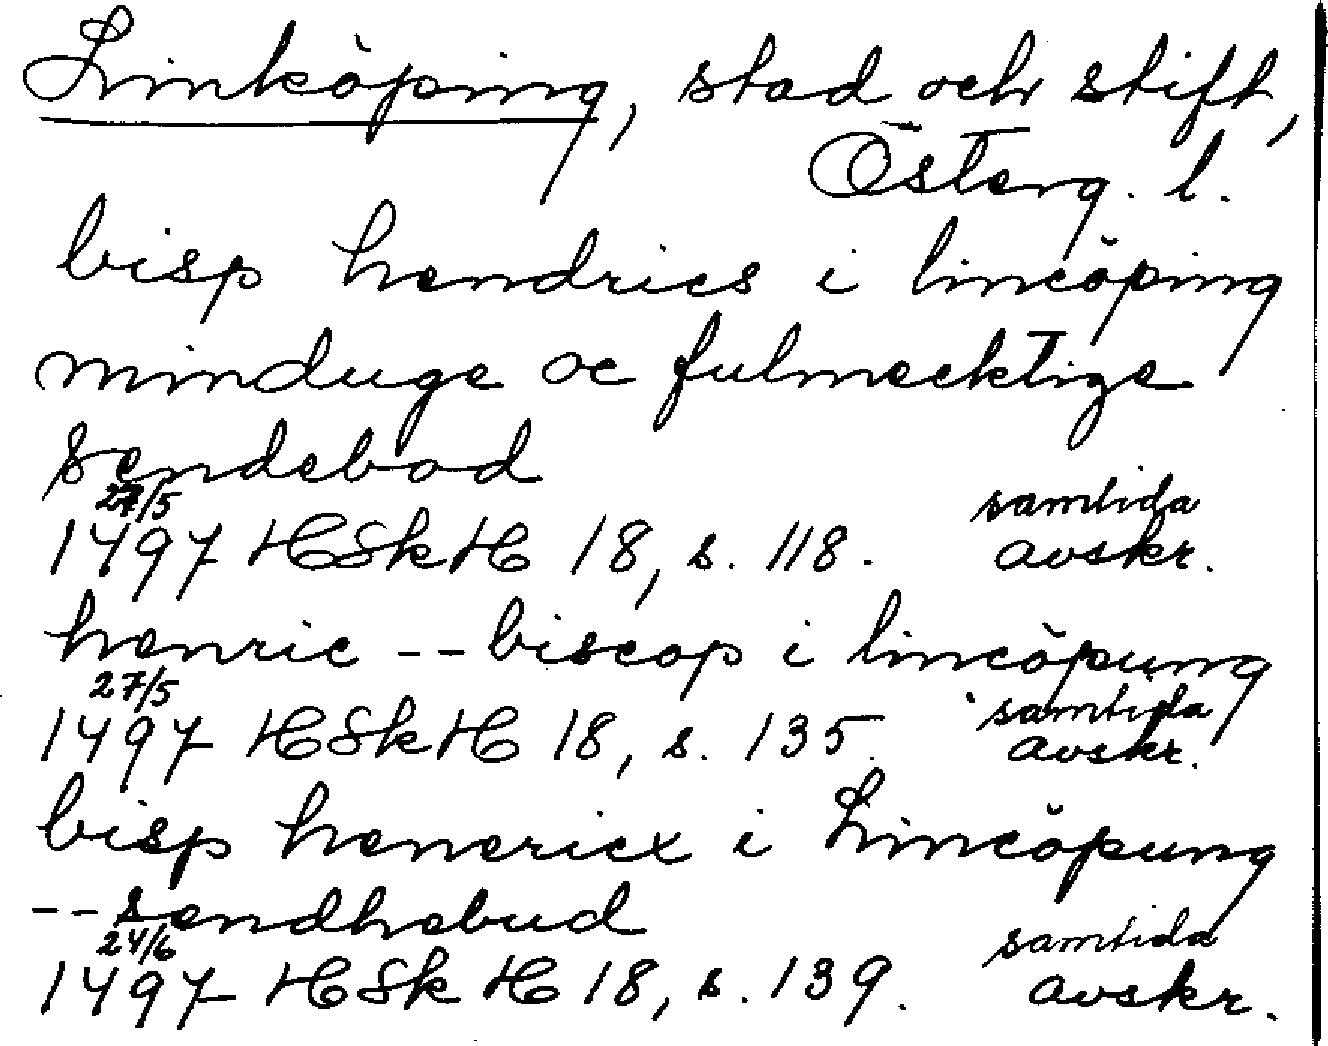 Linköping, stad och stift,
Österg. l.
bisp hendrics i lincöping
minduge oc fulmecktige
sendebod
27/5
1497 HSkH 18, s. 118. samtida avskr.
henric -- biscop i lincöpung
27/5
1497 HSkH 18, s. 135. samtida avskr.
bisp henericx i Lincöpung
-- sendhebud
24/6
1497 HSkH 18, s. 139. samtida avskr.